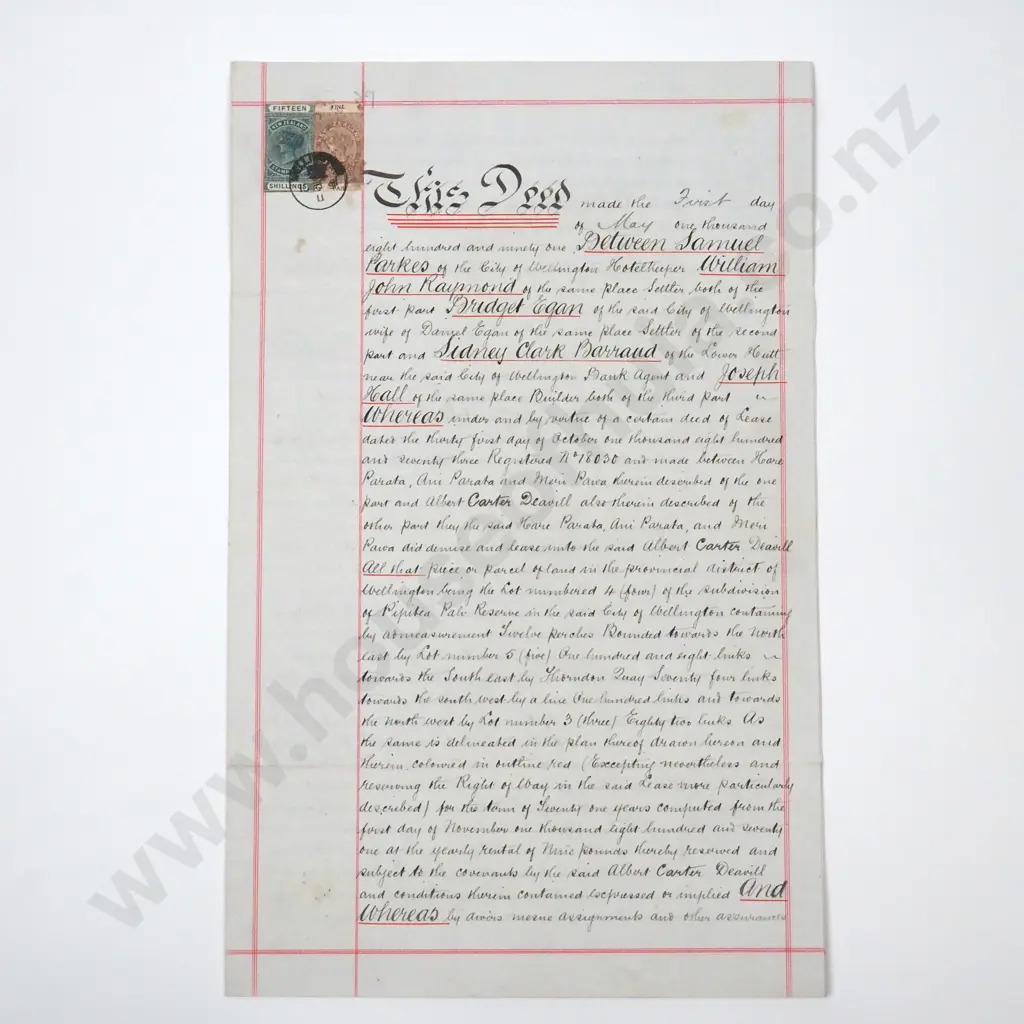 FIFTEEN
NEW ZEALAND
SHILLINGS
This Deed made the First day
of May one thousand
eight hundred and ninety one Between Samuel
Parkes of the City of Wellington Hotelkeeper William
John Raymond of the same place Settler both of the
first part Bridget Egan of the said City of Wellington
wife of Daniel Egan of the same place Settler of the second
part and Sidney Clark Barraud of the Lower Hutt
near the said City of Wellington Bank Agent and Joseph
Hall of the same place Builder both of the third part
Whereas under and by virtue of a certain deed of Lease
dated the thirty first day of October one thousand eight hundred
and seventy three Registered No 18030 and made between Hare
Parata, Ani Parata and Meri Pawa therein described of the one
part and Albert Carter Deavill also therein described of the
other part they the said Hare Parata, Ani Parata, and Meri
Pawa did demise and lease unto the said Albert Carter Deavill
All that piece or parcel of land in the provincial district of
Wellington being the Lot numbered 4 (four) of the subdivision
of Pipitea Pah Reserve in the said City of Wellington containing
by admeasurement Twelve perches Bounded towards the North
east by Lot number 5 (five) One hundred and eight links
towards the South east by Thorndon Quay Seventy four links
towards the south west by a line One hundred links and towards
the North west by Lot number 3 (three) Eighty two links As
the same is delineated in the plan thereof drawn hereon and
therein coloured in outline red (Excepting nevertheless and
reserving the Right of Way in the said Lease more particularly
described) for the term of Twenty one years computed from the
first day of November one thousand eight hundred and seventy
one at the yearly rental of Nine pounds thereby reserved and
subject to the covenants by the said Albert Carter Deavill
and conditions therein contained expressed or implied And
Whereas by divers mesne assignments and other assurances